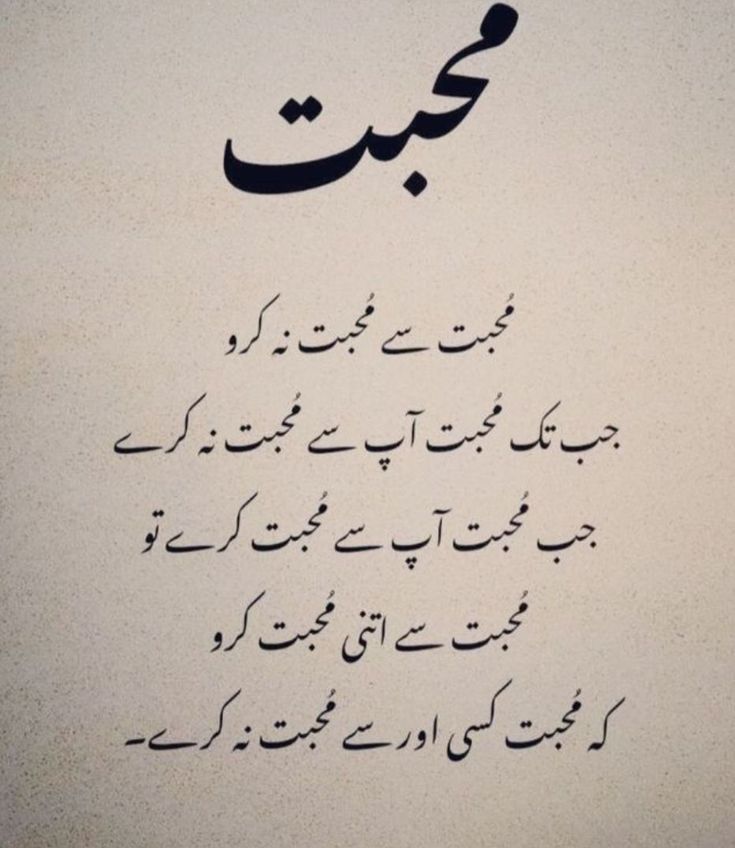 محبت
مُحبت سے مُحبت نہ کرو
جب تک مُحبت آپ سے مُحبت نہ کرے
جب مُحبت آپ سے مُحبت کرے تو
مُحبت سے اتنی مُحبت کرو
کہ مُحبت کسی اور سے مُحبت نہ کرے۔